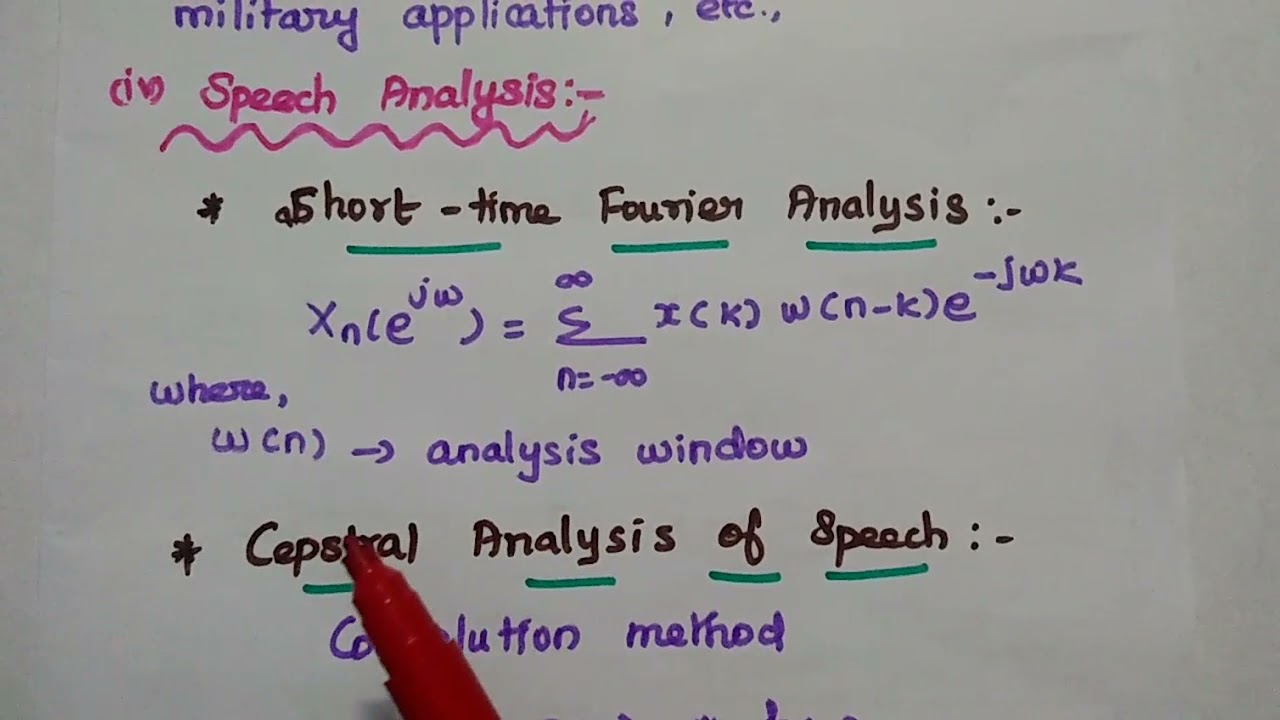 military applications, etc.,
(iv) Speech Analysis:-
* Short-time Fourier Analysis:-
Xn(e^jω) = ∞Σn=-∞ x(k) w(n-k)e^-jωk
where,
w(n) → analysis window
* Cepstral Analysis of Speech:-
method